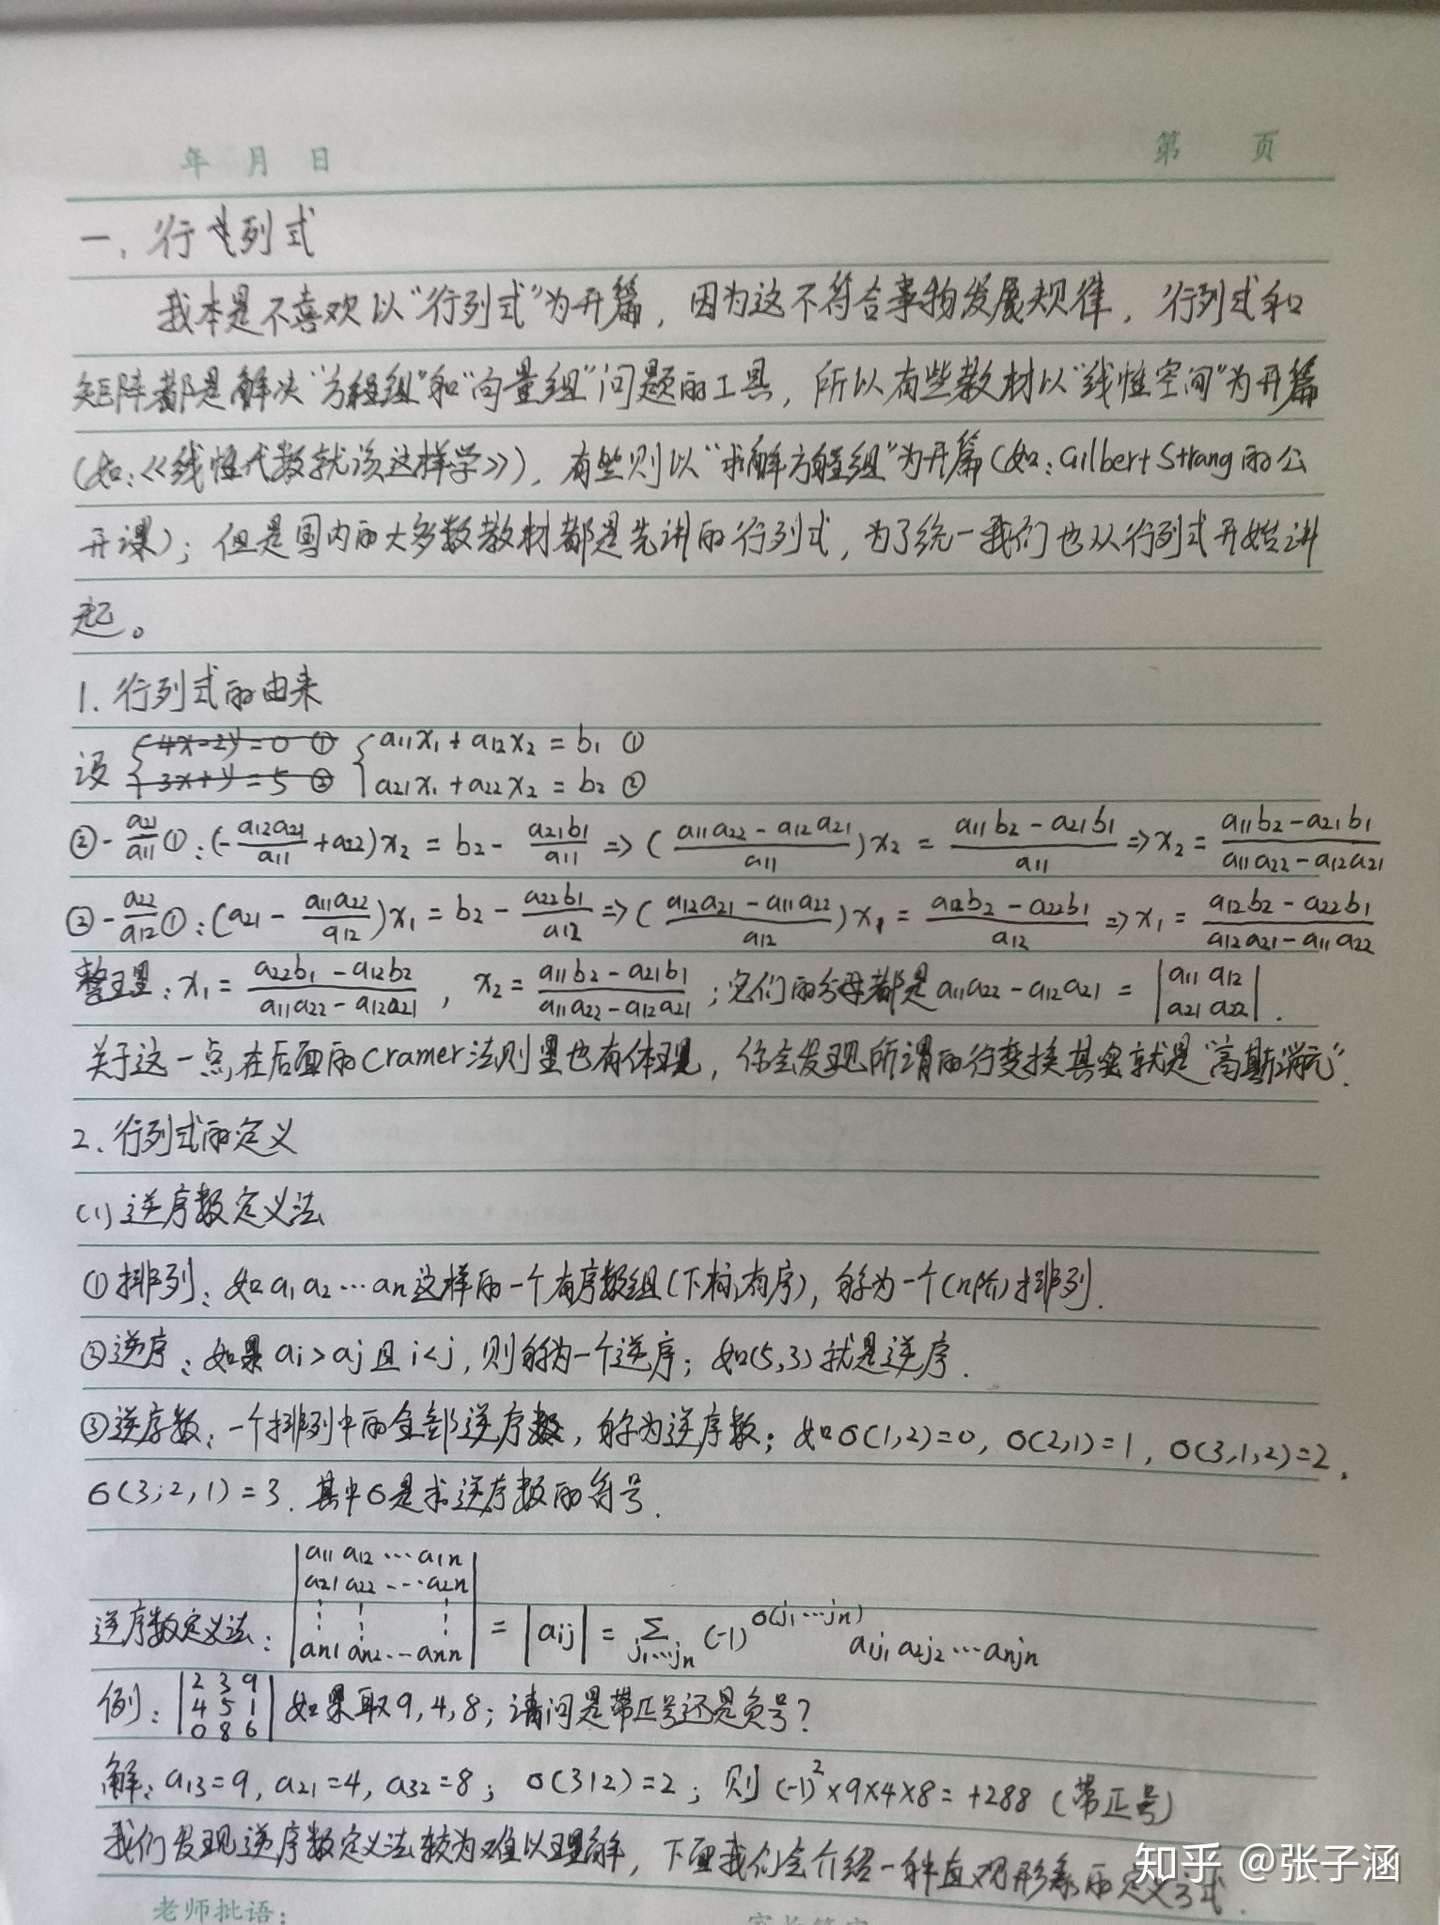 年 月 日 第 页
一、行列式
我本是不喜欢以“行列式”为开篇，因为这不符合事物发展规律，行列式和
矩阵都是解决“方程组”和“向量组”问题的工具，所以有些教材以“线性空间”为开篇
(如:《线性代数就该这样学》)，有些则以“求解方程组”为开篇(如:Gilbert Strang的公
开课)；但是国内的大多数教材都是先讲的行列式，为了统一我们也从行列式开始讲
起。
1.行列式的由来
设 {4x-2y=0 ① 3x+y=5 ② {a11x1+a12x2=b1 ① a21x1+a22x2=b2 ②
②-a21/a11①:(-a12a21/a11+a22)x2=b2-a21b1/a11=>((a11a22-a12a21)/a11)x2=(a11b2-a21b1)/a11=>x2=(a11b2-a21b1)/(a11a22-a12a21)
②-a22/a12①:(a21-a11a22/a12)x1=b2-a22b1/a12=>((a12a21-a11a22)/a12)x1=(a12b2-a22b1)/a12=>x1=(a12b2-a22b1)/(a12a21-a11a22)
整理:x1=(a22b1-a12b2)/(a11a22-a12a21), x2=(a11b2-a21b1)/(a11a22-a12a21);它们的分母都是a11a22-a12a21=|a11 a12 a21 a22|.
关于这一点,在后面的Cramer法则里也有体现，你会发现所谓的行变换其实就是“高斯消元”.
2.行列式的定义
(1)逆序数定义法
①排列:如a1a2…an这样的一个有序数组(下标有序)，称为一个(n阶)排列.
②逆序:如果ai>aj且i<j,则称为一个逆序；如(5,3)就是逆序.
③逆序数:一个排列中的全部逆序数，称为逆序数；如σ(1,2)=0, σ(2,1)=1, σ(3,1,2)=2,
σ(3,2,1)=3.其中σ是求逆序数的符号.
逆序数定义法:|a11 a12 … a1n a21 a22 … a2n ⋮ ⋮ ⋮ an1 an2 … ann|=|aij|=∑j1…jn(-1)^σ(j1…jn) a1j1a2j2…anjn
例:|2 3 9 4 5 1 0 8 6|如果取9,4,8;请问是带正号还是负号？
解:a13=9,a21=4,a32=8;σ(312)=2;则(-1)²×9×4×8=+288(带正号)
我们发现逆序数定义法较为难以理解，下面我们会介绍一种直观形象的定义方式.
老师批语:
知乎 @张子涵